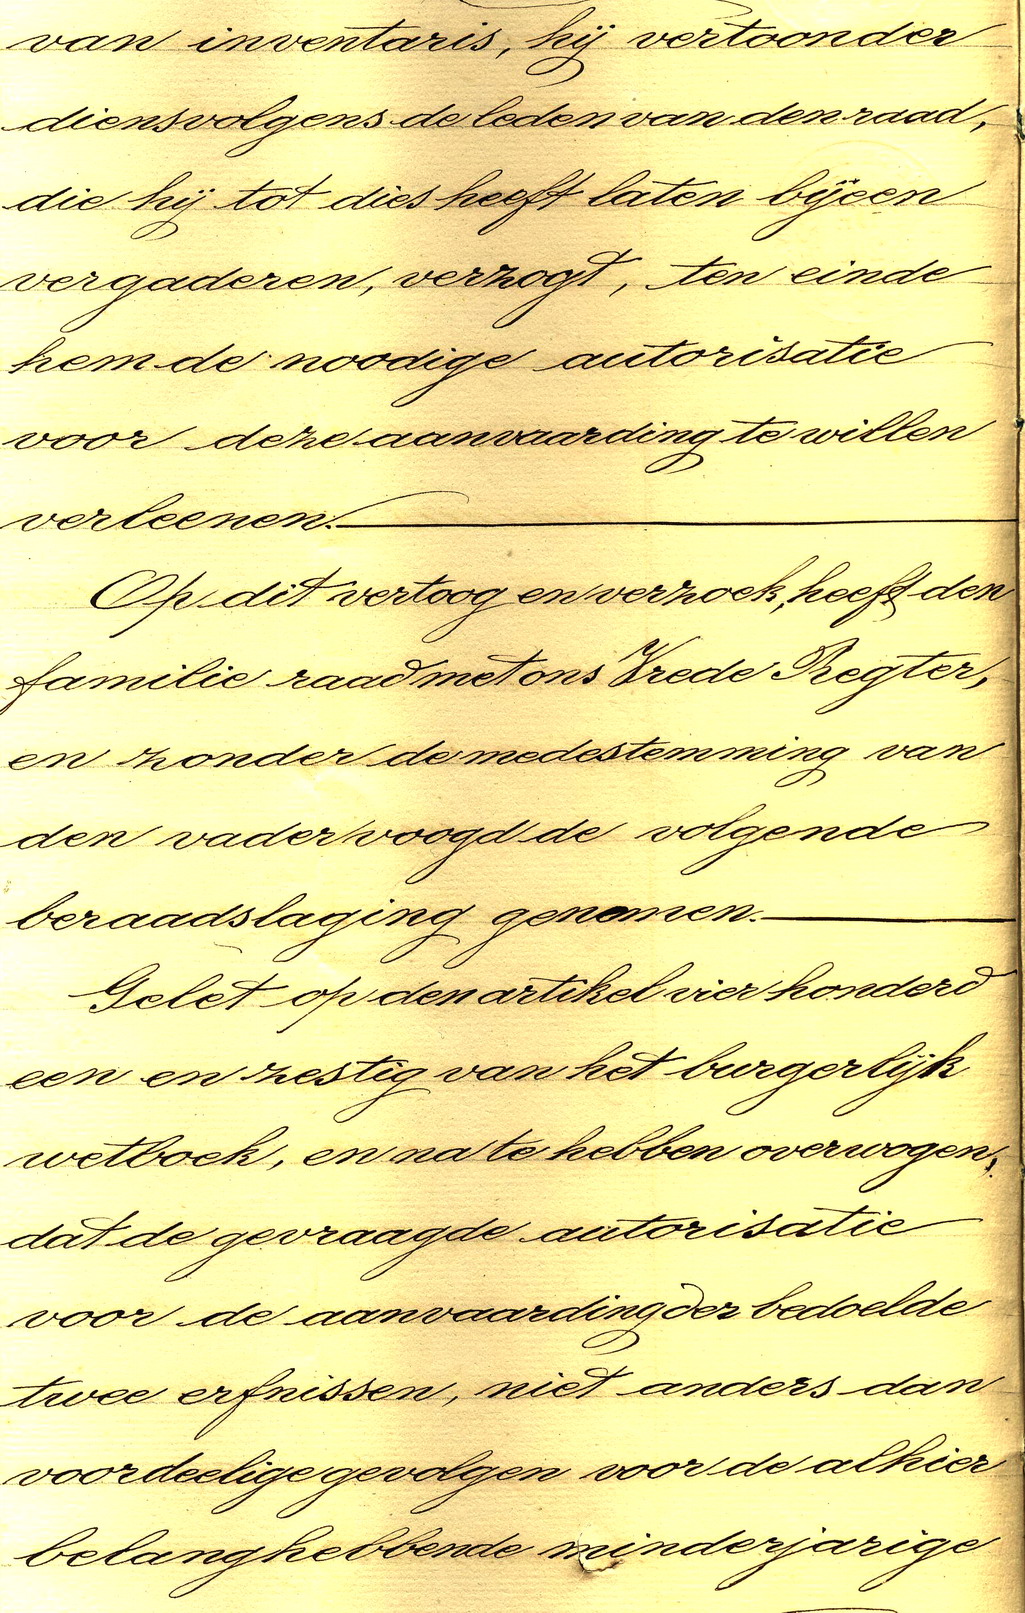 van inventaris, hij vertoonder
diensvolgens de leden van den raad,
die hij tot dies heeft laten bijeen
vergaderen, verzogt, ten einde
hem de noodige autorisatie
voor deze aanvaarding te willen
verleenen.
Op dit vertoog en verzoek, heeft den
familie raad met ons Vrede Regter,
en zonder de medestemming van
den vader voogd de volgende
beraadslaging genomen.
Gelet op den artikel vier honderd
een en zestig van het burgerlijk
wetboek, en na te hebben overwogen,
dat de gevraagde autorisatie
voor de aanvaarding der bedoelde
twee erfnissen, niet anders dan
voordeelige gevolgen voor de alhier
belanghebbende minderjarige